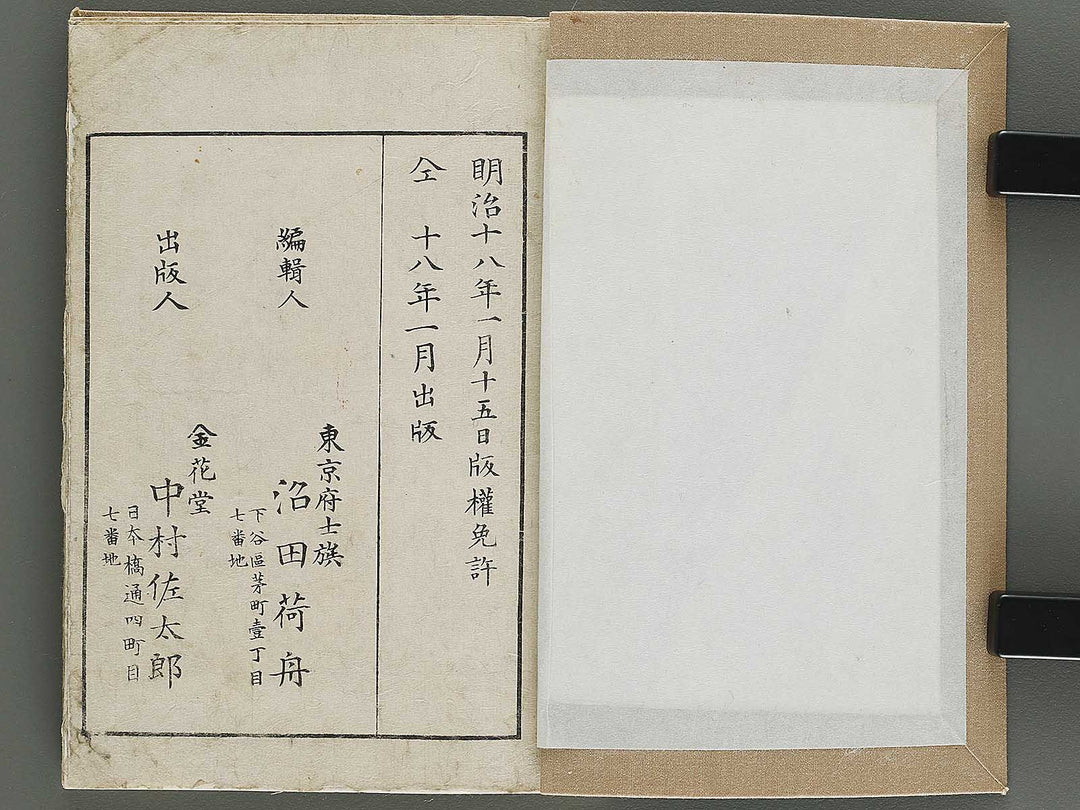 明治十八年一月十五日版權免許
仝 十八年一月出版
編輯人
東京府士族
沼田荷舟
下谷區茅町壹丁目
七番地
出版人
金花堂
中村佐太郎
日本橋通四町目
七番地